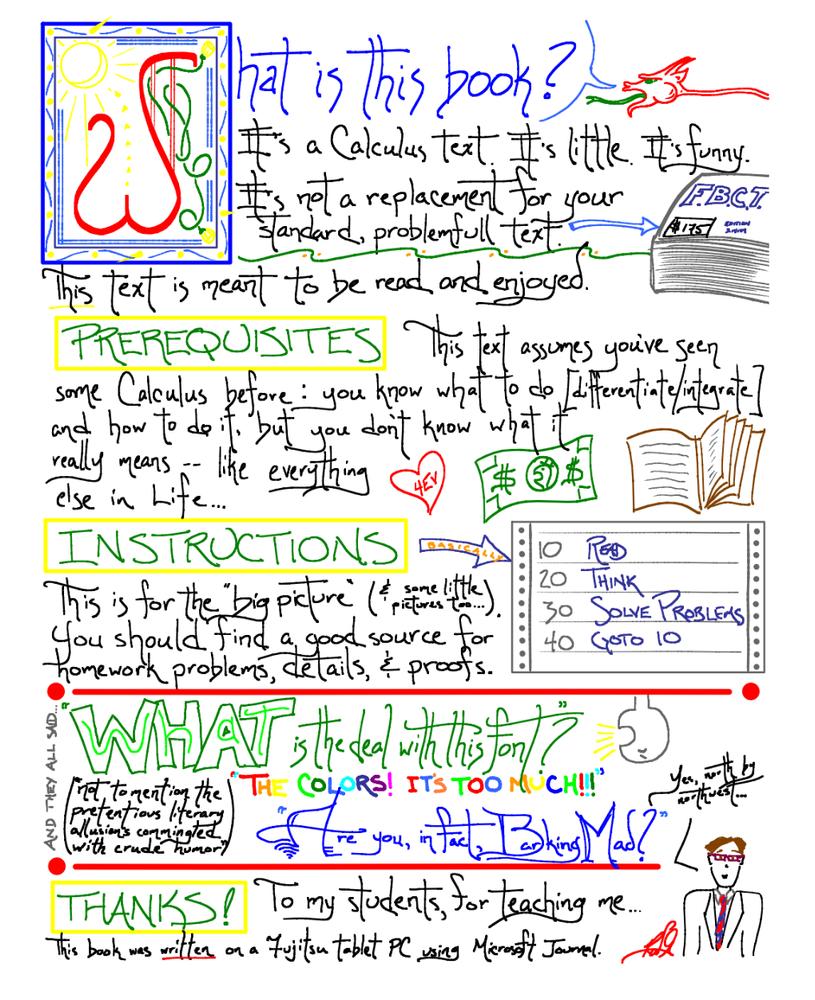 What is this book?
It's a Calculus text. It's little. It's funny.
It's not a replacement for your
standard, problemfull text.
F.B.C.T.
$175
EDITION
This text is meant to be read and enjoyed.
PREREQUISITES
This text assumes you've seen
some Calculus before: you know what to do [differentiate/integrate]
and how to do it, but you don't know what it
really means -- like everything
else in Life...
4EV
$ $ $
INSTRUCTIONS
BASICALLY
10 READ
20 THINK
30 SOLVE PROBLEMS
40 GOTO 10
This is for the "big picture" (& some little
pictures too...).
You should find a good source for
homework problems, details, & proofs.
AND THEY ALL SAID...
"WHAT is the deal with this font?"
(not to mention the
pretentious literary
allusions commingled
with crude humor)
"THE COLORS! IT'S TOO MUCH!!!"
"Are you, in fact, Barking Mad?"
Yes, north by
northwest...
THANKS!
To my students, for teaching me...
This book was written on a Fujitsu tablet PC using Microsoft Journal.